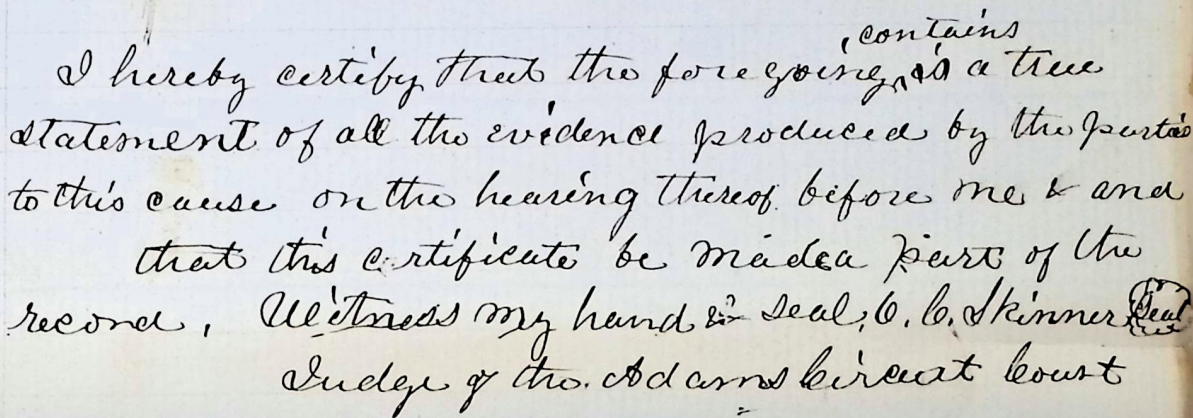 , contains
I hereby certify that the foregoing, is a true
statement of all the evidence produced by the parties
to this cause on the hearing thereof before me & and
that this certificate be made a part of the
record. Witness my hand & seal, C. C. Skinner Seal
Judge of the Adams Circuit Court